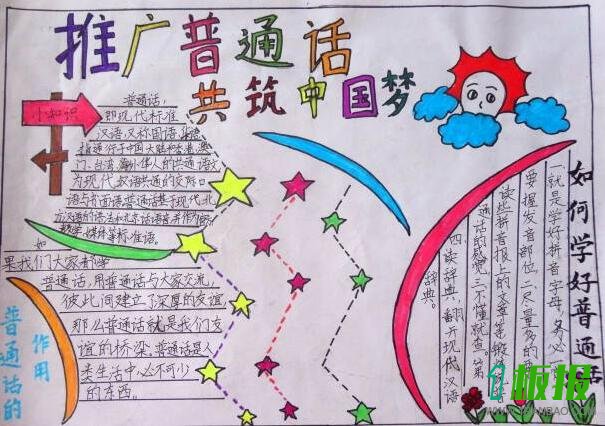 推广普通话
共筑中国梦
小知识
普通话，
即现代标准
汉语，又称国语、华语
指通行于中国大陆和香港、澳
门、台湾、海外华人的共通语文
为现代汉语共通的交际口
语与书面语。普通话基于现代北
方汉语的语法和北京话语音并作为
教学、媒体等标准语。
如
果我们大家都学
普通话，用普通话与大家交流，
彼此间建立了深厚的友谊
那么普通话就是我们友
谊的桥梁。普通话是人
类生活中必不可少
的东西。
普通话的
作用
如何学好普通话
一就是学好拼音字母，务必
要握发音部位。二尽量多的
读些拼音报上的文章等锻炼
通话的感觉。三不懂就查。第
四读辞典，翻开现代汉语
辞典。
板报